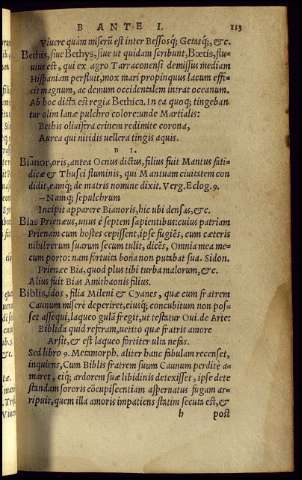 B ANTE I. 113
Vivere quàm miserũ est inter Bessosq; Getasq;, &c.
Bethis, siue Bethys, siue ut quidam scribunt, Bætis, fluuius est, qui ex agro Tarraconensi demissus mediam
Hispaniam perfluit, mox mari propinquus lacum efficit magnum, ac demum occidentem intrat oceanum.
Ab hoc dicta est regia Bethica. In ea quoq; tingebantur olim lanæ pulchro colore: unde Martialis:
Bethis oliuifera crinem redimite corona,
Aurea qui nitidis vellera tingis aquis.
B I.
Bianor, oris, antea Ocnus dictus, filius fuit Mantus fatidicæ & Thusci fluminis, qui Mantuam ciuitatem condidit, eamq; de matris nomine dixit. Verg. Eclog. 9.
—Namq; sepulchrum
Incipit apparere Bianoris, hic ubi densas, &c.
Bias Prienæus, unus è septem sapientibus: cuius patriam
Prienam cum hostes cepissent, ipse fugiẽs, cum cæteris
nihil rerum suarum secum tulit, dicẽs, Omnia mea mecum porto: nam fortuita bona non putabat sua. Sidon.
Prienæe Bia, quod plus tibi turba malorum, &c.
Alius fuit Bias Amithaonis filius.
Biblis, idos, filia Mileni & Cyanes, quæ cum fratrem
Caunum misere deperiret, eiusq; concubitum non posset assequi, laqueo gulã fregit, ut testatur Oui. de Arte:
Biblida quid referam, uetito quæ fratris amore
Arsit, & est laqueo fortiter ulta nefas.
Sed libro 9. Metamorph. aliter hanc fabulam recenset,
inquiens, Cum Biblis fratrem suum Caunum perdite amaret, eiq; ardorem suæ libidinis detexisset, ipse detestandam sororis cõcupiscentiam aspernatus fugam arripuit, quem illa amoris impatiens statim secuta est, &
h post